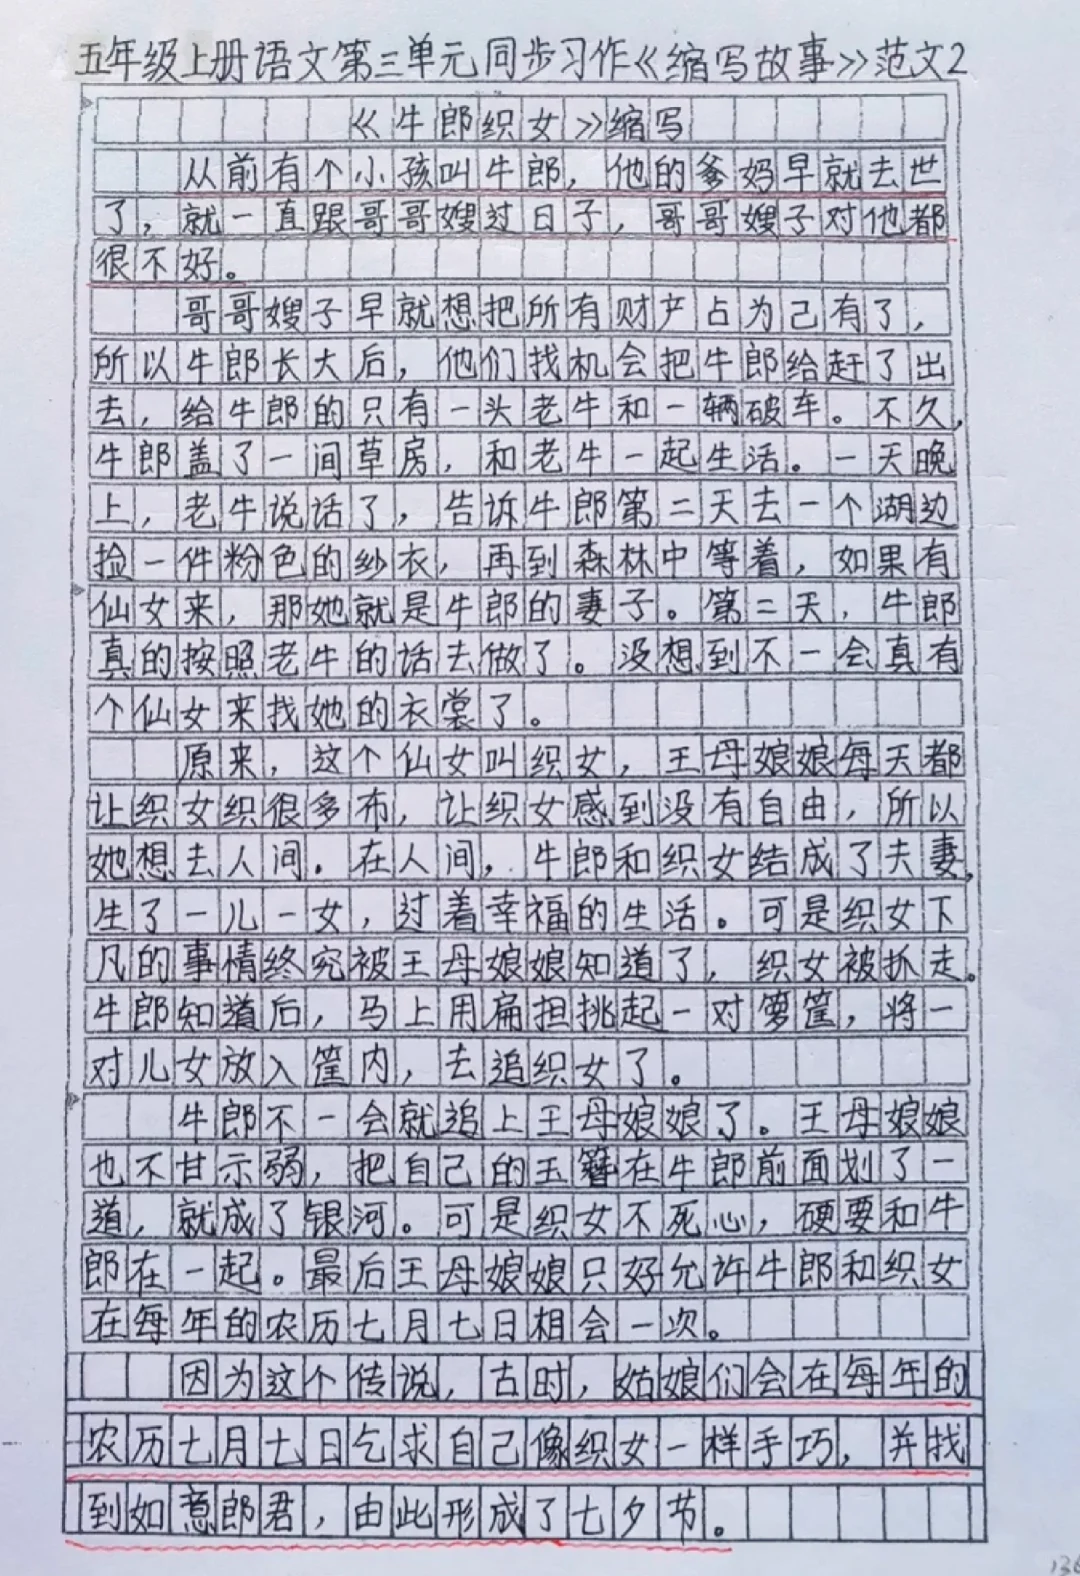 五年级上册语文第三单元同步习作《缩写故事》范文2
《牛郎织女》缩写
从前有个小孩叫牛郎，他的爹妈早就去世
了，就一直跟哥哥嫂过日子，哥哥嫂子对他都
很不好。
哥哥嫂子早就想把所有财产占为己有了，
所以牛郎长大后，他们找机会把牛郎给赶了出
去，给牛郎的只有一头老牛和一辆破车。不久，
牛郎盖了一间草房，和老牛一起生活。一天晚
上，老牛说话了，告诉牛郎第二天去一个湖边
捡一件粉色的纱衣，再到森林中等着，如果有
仙女来，那她就是牛郎的妻子。第二天，牛郎
真的按照老牛的话去做了。没想到不一会真有
个仙女来找她的衣裳了。
原来，这个仙女叫织女，王母娘娘每天都
让织女织很多布，让织女感到没有自由，所以
她想去人间。在人间，牛郎和织女结成了夫妻，
生了一儿一女，过着幸福的生活。可是织女下
凡的事情终究被王母娘娘知道了，织女被抓走。
牛郎知道后，马上用扁担挑起一对箩筐，将一
对儿女放入筐内，去追织女了。
牛郎不一会就追上王母娘娘了。王母娘娘
也不甘示弱，把自己的玉簪在牛郎前面划了一
道，就成了银河。可是织女不死心，硬要和牛
郎在一起。最后王母娘娘只好允许牛郎和织女
在每年的农历七月七日相会一次。
因为这个传说，古时，姑娘们会在每年的
农历七月七日乞求自己像织女一样手巧，并找
到如意郎君，由此形成了七夕节。